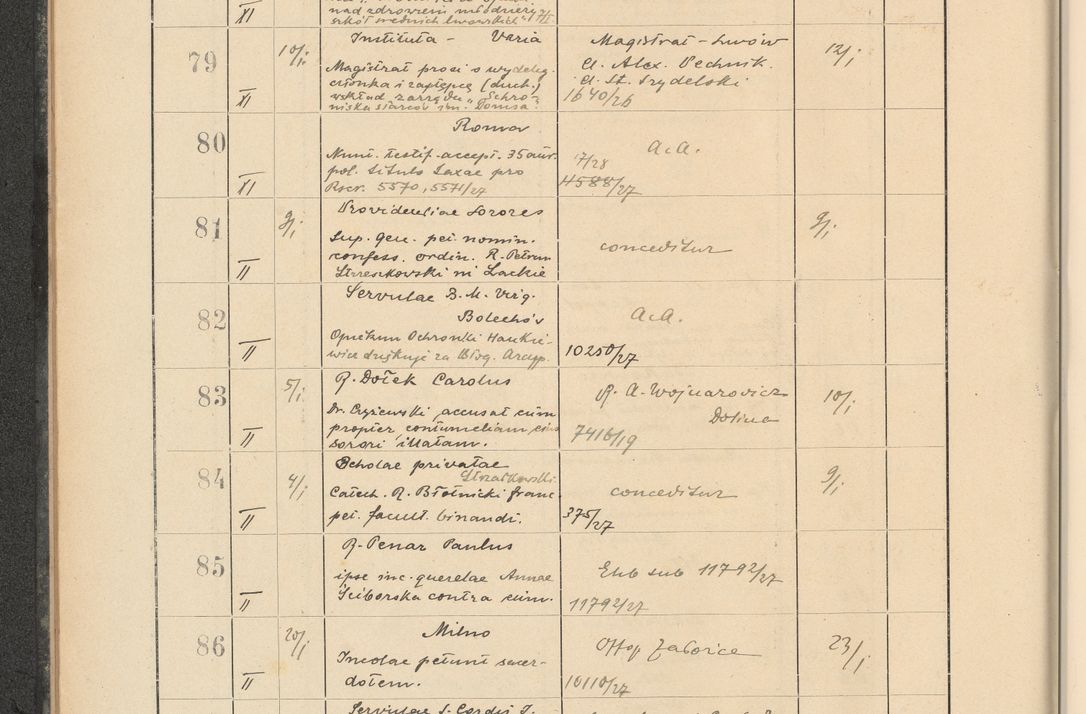 XI
nad zdrowiem młodzieży
szkół średnich lwowskich" 17/I
79
10/i
XI
Instituta - Varia
Magistrat prosi o wydeleg.
członka i zastępcę (duch.)
w skład zarządu „Schro-
niska starców im. Domsa".
Magistrat - Lwów
Al. Alex. Pechnik.
Al. St. Szydelski
1640/26
12/i
80
XI
Roma
Nunt. testif. accept. 35 aur.
pol. titulo taxae pro
Rscr. 5570, 5571/27
A.A.
7/28
11588/27
81
9/i
II
Providentiae Sorores
Sup. gen. pet. nomin.
confess. ordin. R. Petrum
Strzeszkowski in Lackie
conceditur
9/i
82
II
Servulae B. M. Virg.
Bolechów
Opiekun Ochronki Hankie-
wicz dziękuje za Błog. Arcyp.
A.A.
10250/27
83
5/i
II
R. Dołek Carolus
Dr. Czyżewski accusat eum
propter contumeliam eius
sorori illatam.
R. A. Wojnarowicz
Dolina
7416/19
10/i
84
4/i
II
Scholae privatae
Strzałkowski.
Catech. R. Błotnicki franc.
pet. facult. binandi.
conceditur
375/27
9/i
85
II
R. Penar Paulus
ipse inc. querelae Annae
Ściborska contra eum.
Exh sub 11792/27
11792/27
86
20/i
II
Milno
Incolae petunt sacer-
dotem.
Offop Załoźce
10110/27
23/i
Servulae S. Cordis J.